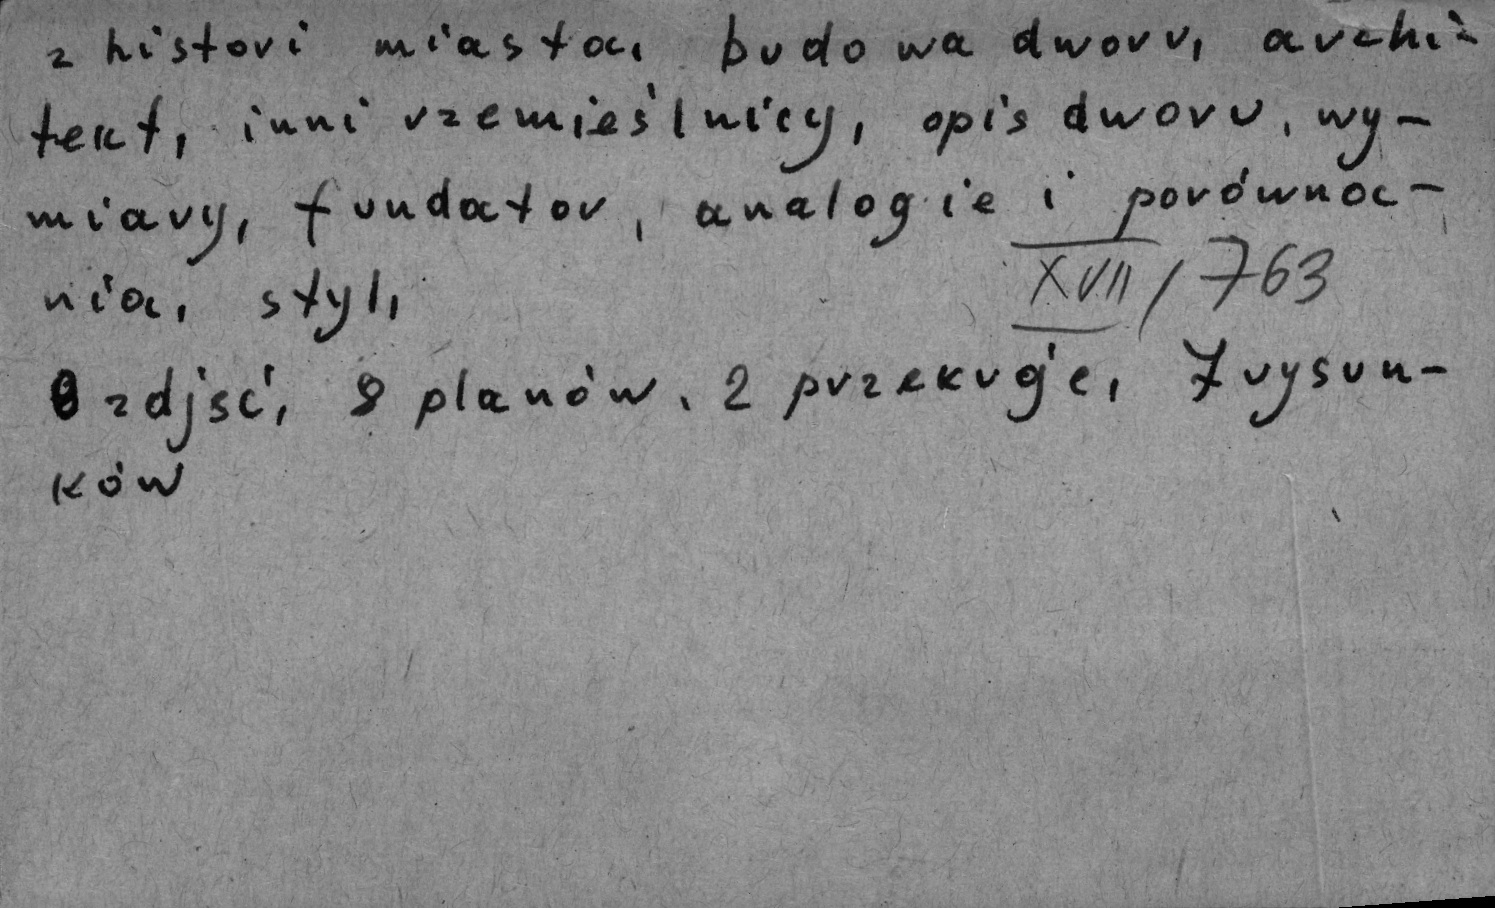 z histori miasta, budowa dworu, archi-
tekt, inni rzemieślnicy, opis dworu, wy-
miary, fundator, analogie i porówna-
nia, styl,
XVII/763
8 zdjęć, 8 planów, 2 przekroje, 7 rysun-
ków